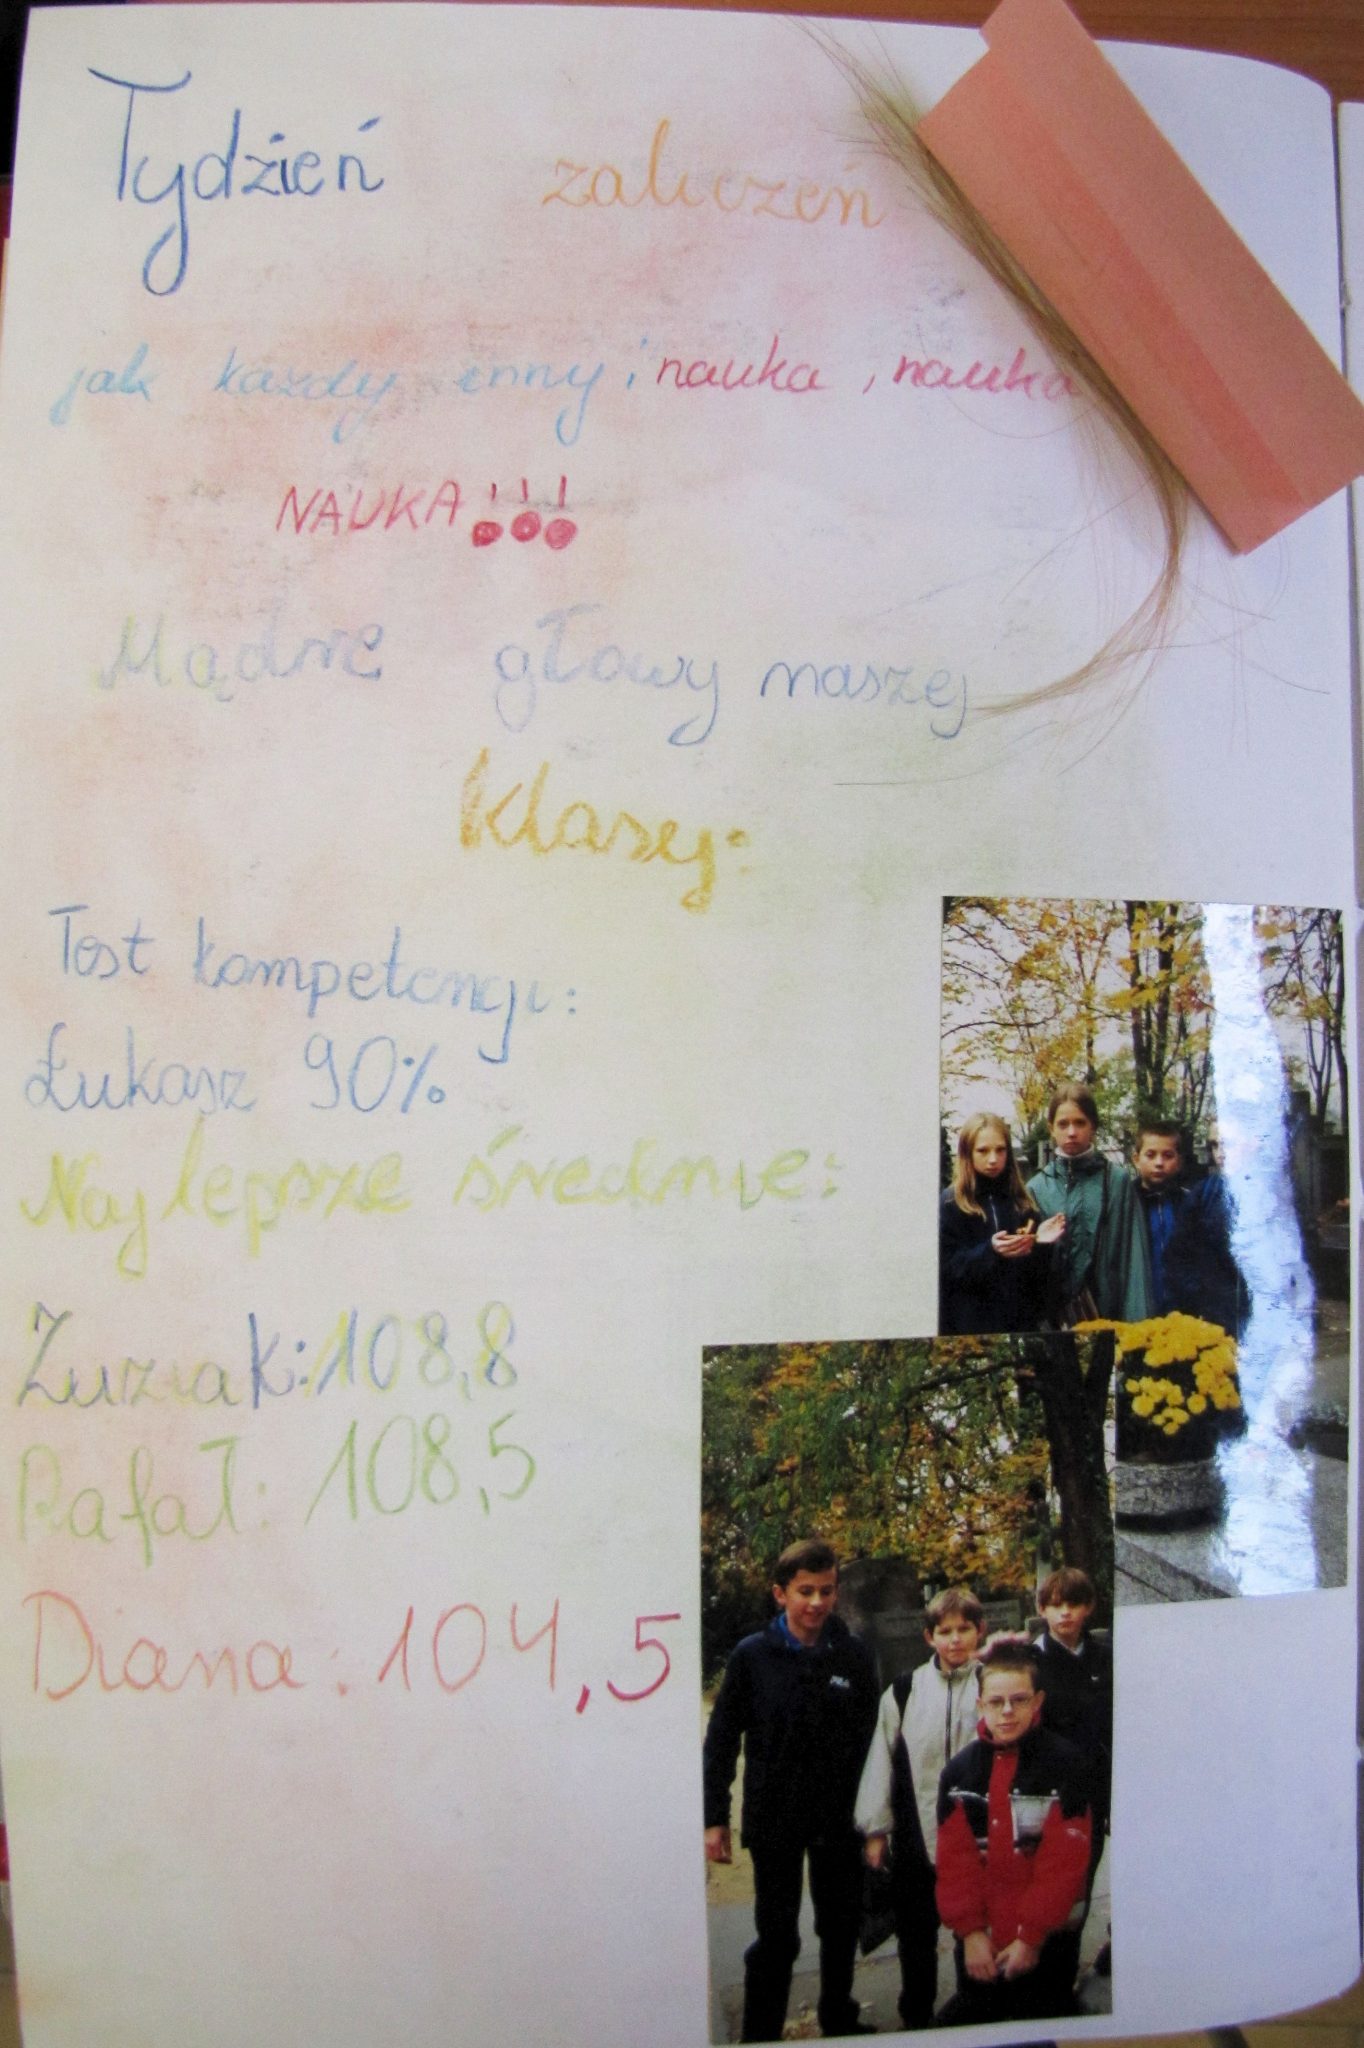 Tydzień zaliczeń
jak każdy inny; nauka, nauka
NAUKA!!!
Mądre głowy naszej
klasy:
Test kompetencji:
Łukasz 90%
Najlepsze średnie:
Zuziak: 108,8
Rafał: 108,5
Diana: 104,5